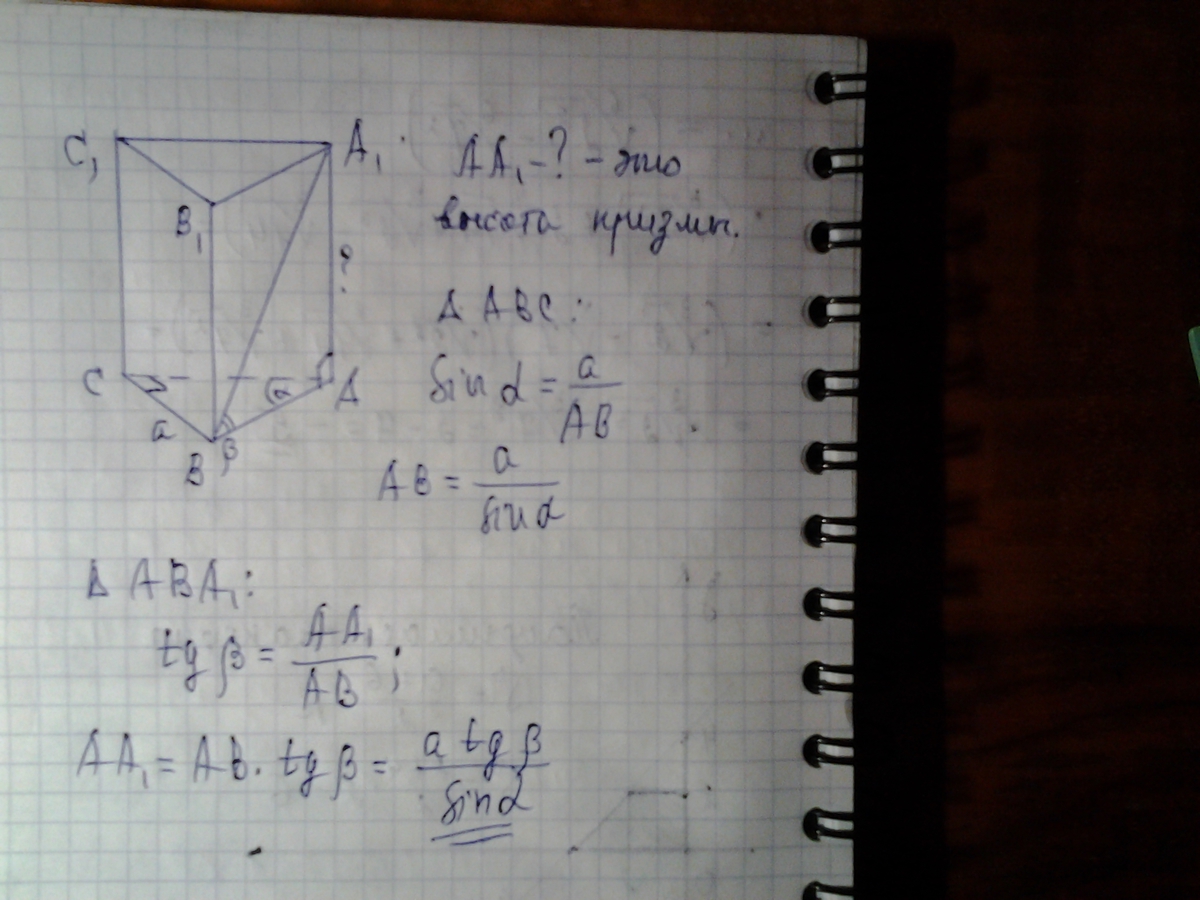 C₁
A₁
B₁
?
C
α
A
a
β
B
AA₁ - ? - это
высота призмы.
Δ ABC:
sin α = a/AB
AB = a/sin α
Δ ABA₁:
tg β = AA₁/AB;
AA₁ = AB · tg β = a tg β/sin α